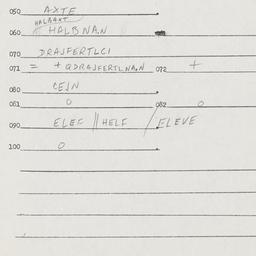 050 AXTE
HALBAXT
060 HALBNAN
070 DRAJFERTLCI
071 = + QDRAJFERTLNAN 072 +
080 CEJN
081 0 082 0
090 ELEF // HELF / ELEVE
100 0